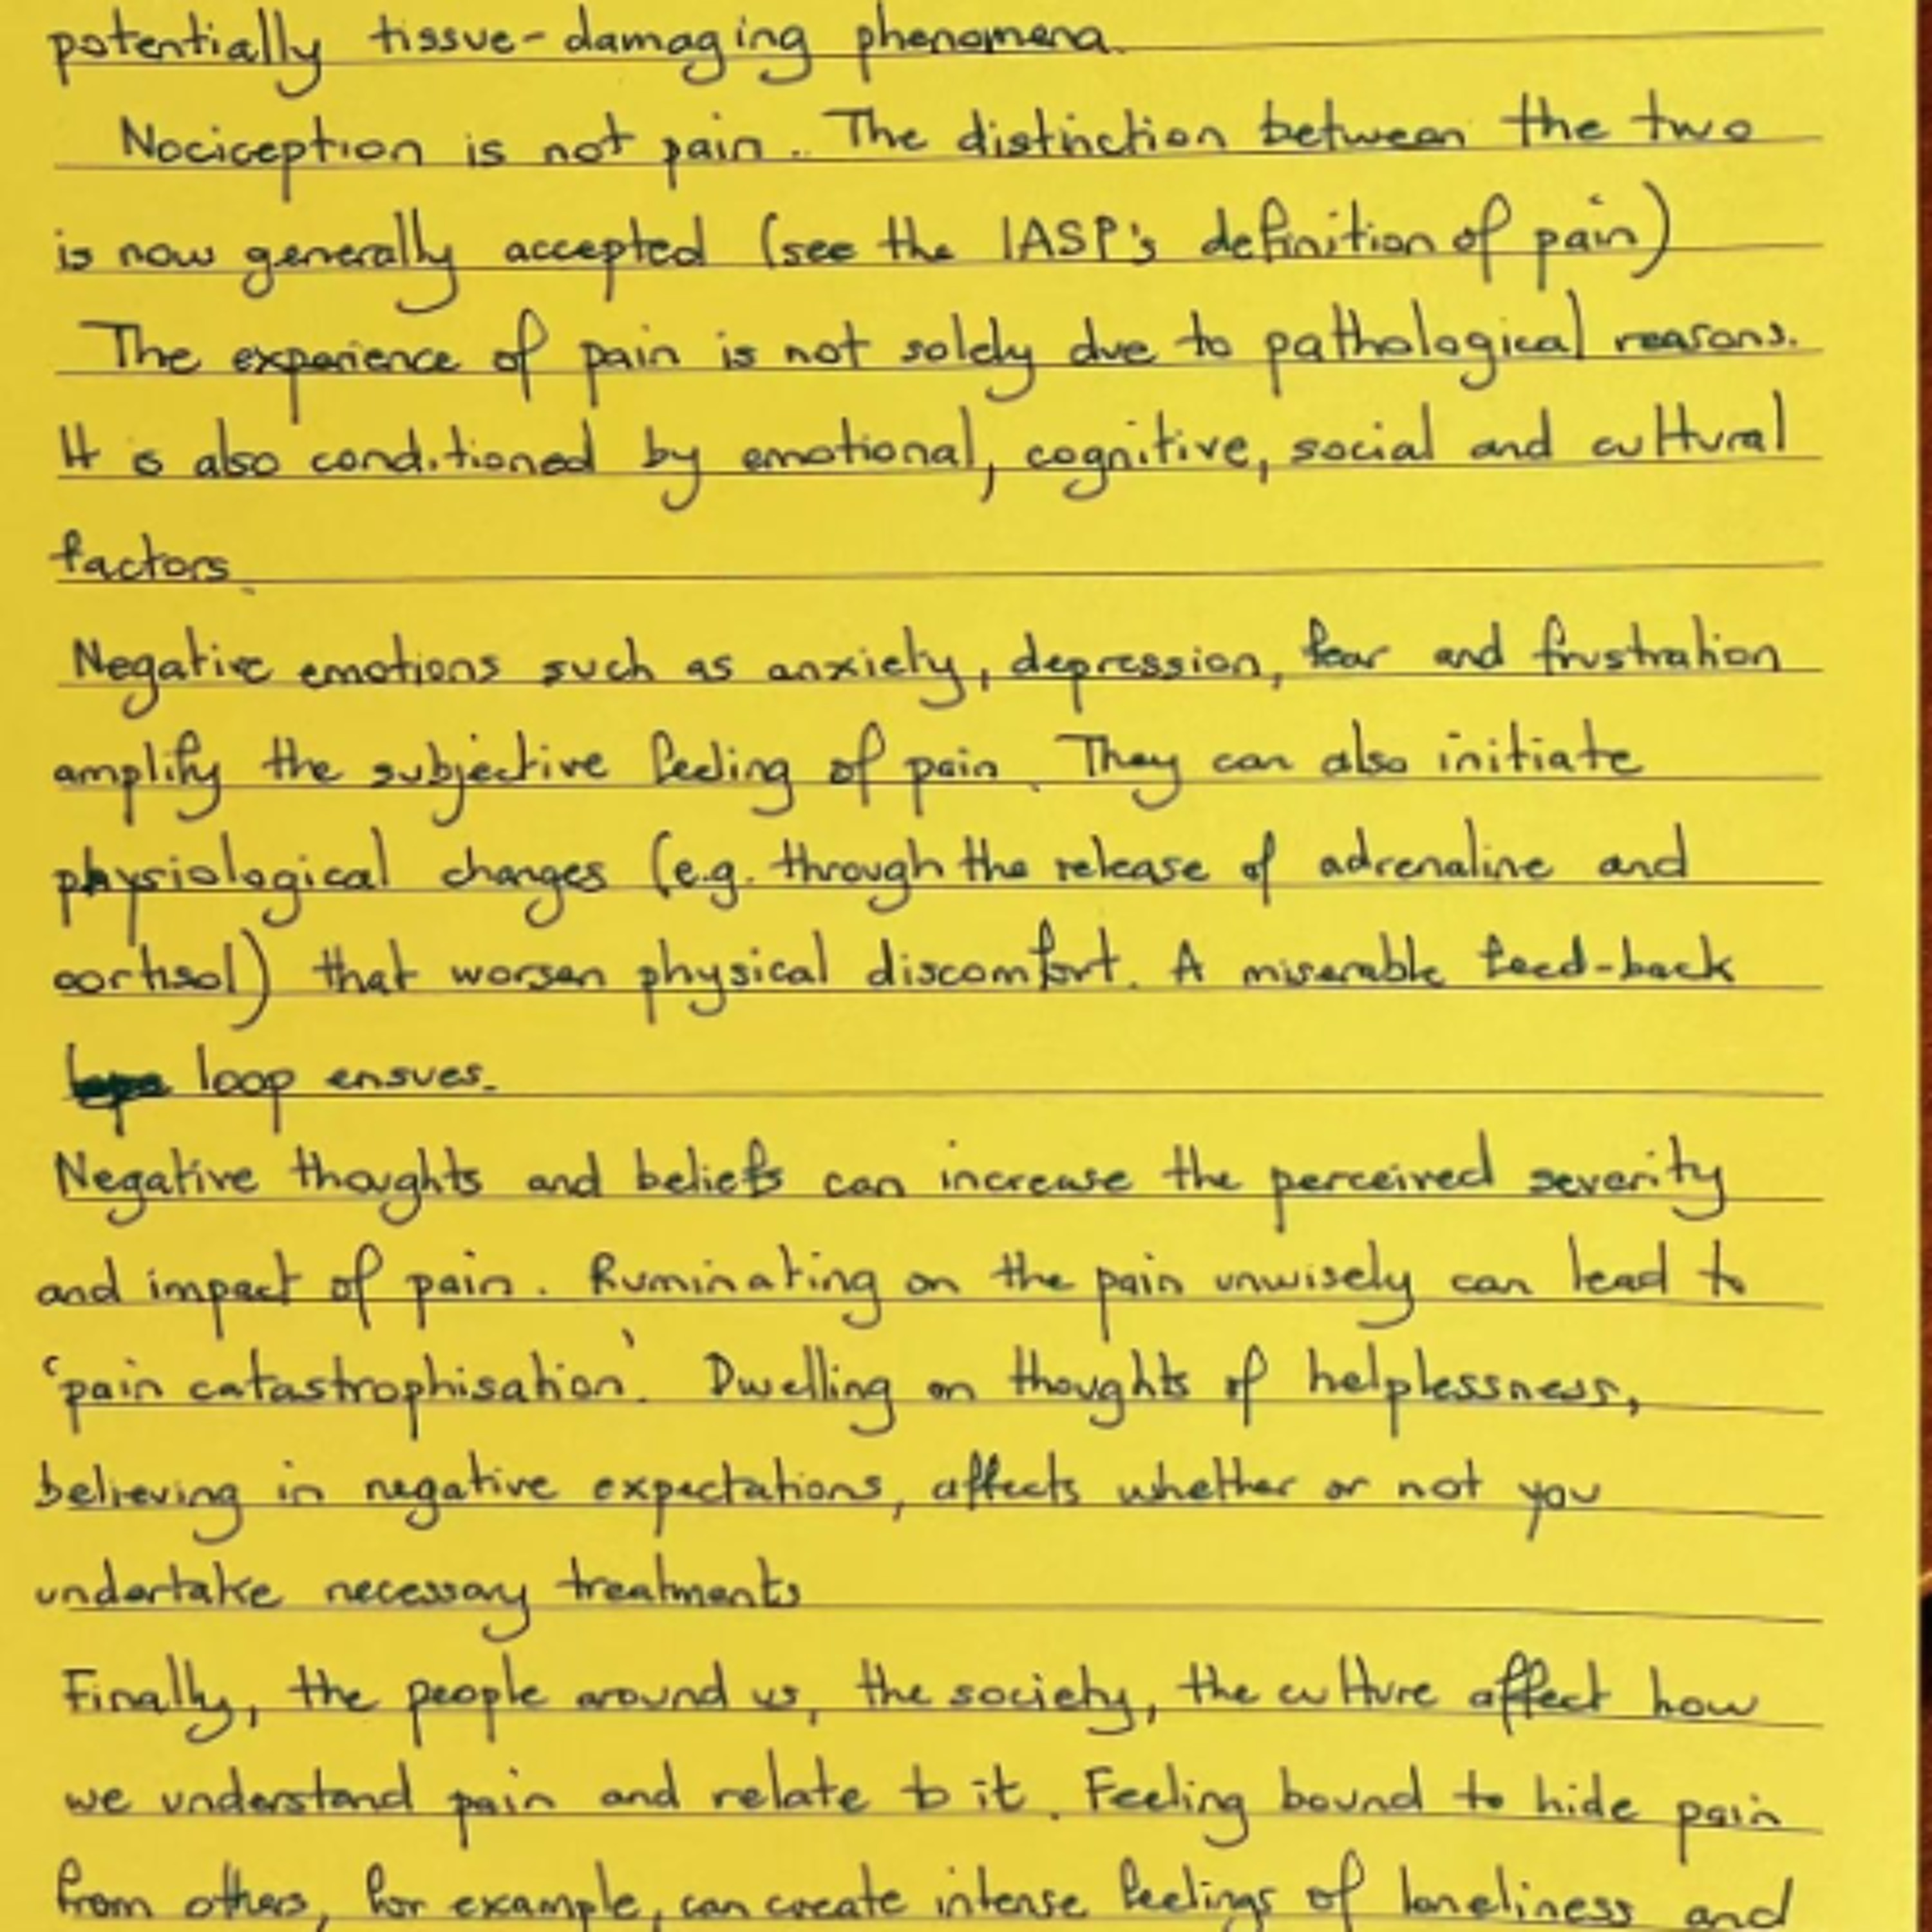 potentially tissue-damaging phenomena.
Nociception is not pain. The distinction between the two
is now generally accepted (see the IASP's definition of pain)
The experience of pain is not solely due to pathological reasons.
It is also conditioned by emotional, cognitive, social and cultural
factors.
Negative emotions such as anxiety, depression, fear and frustration
amplify the subjective feeling of pain. They can also initiate
physiological changes (e.g. through the release of adrenaline and
cortisol) that worsen physical discomfort. A miserable feed-back
loop ensues.
Negative thoughts and beliefs can increase the perceived severity
and impact of pain. Ruminating on the pain unwisely can lead to
'pain catastrophisation'. Dwelling on thoughts of helplessness,
believing in negative expectations, affects whether or not you
undertake necessary treatments
Finally, the people around us, the society, the culture affect how
we understand pain and relate to it. Feeling bound to hide pain
from others, for example, can create intense feelings of loneliness and